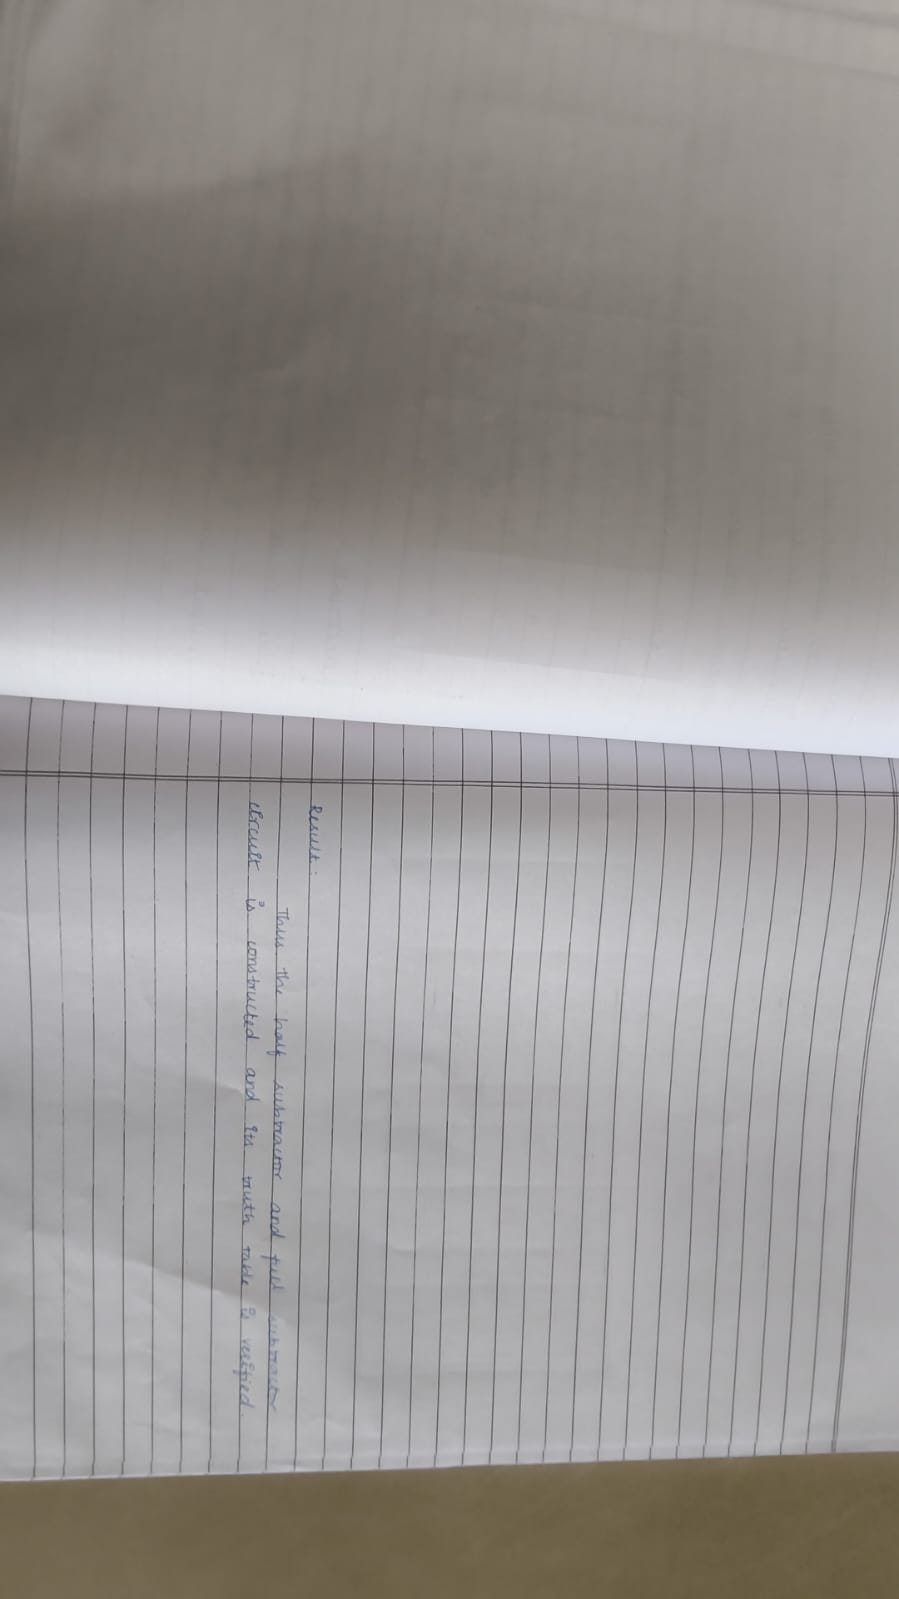 Result:
Thus the half subtractor and full subtractor
circuit is constructed and its truth table is verified.